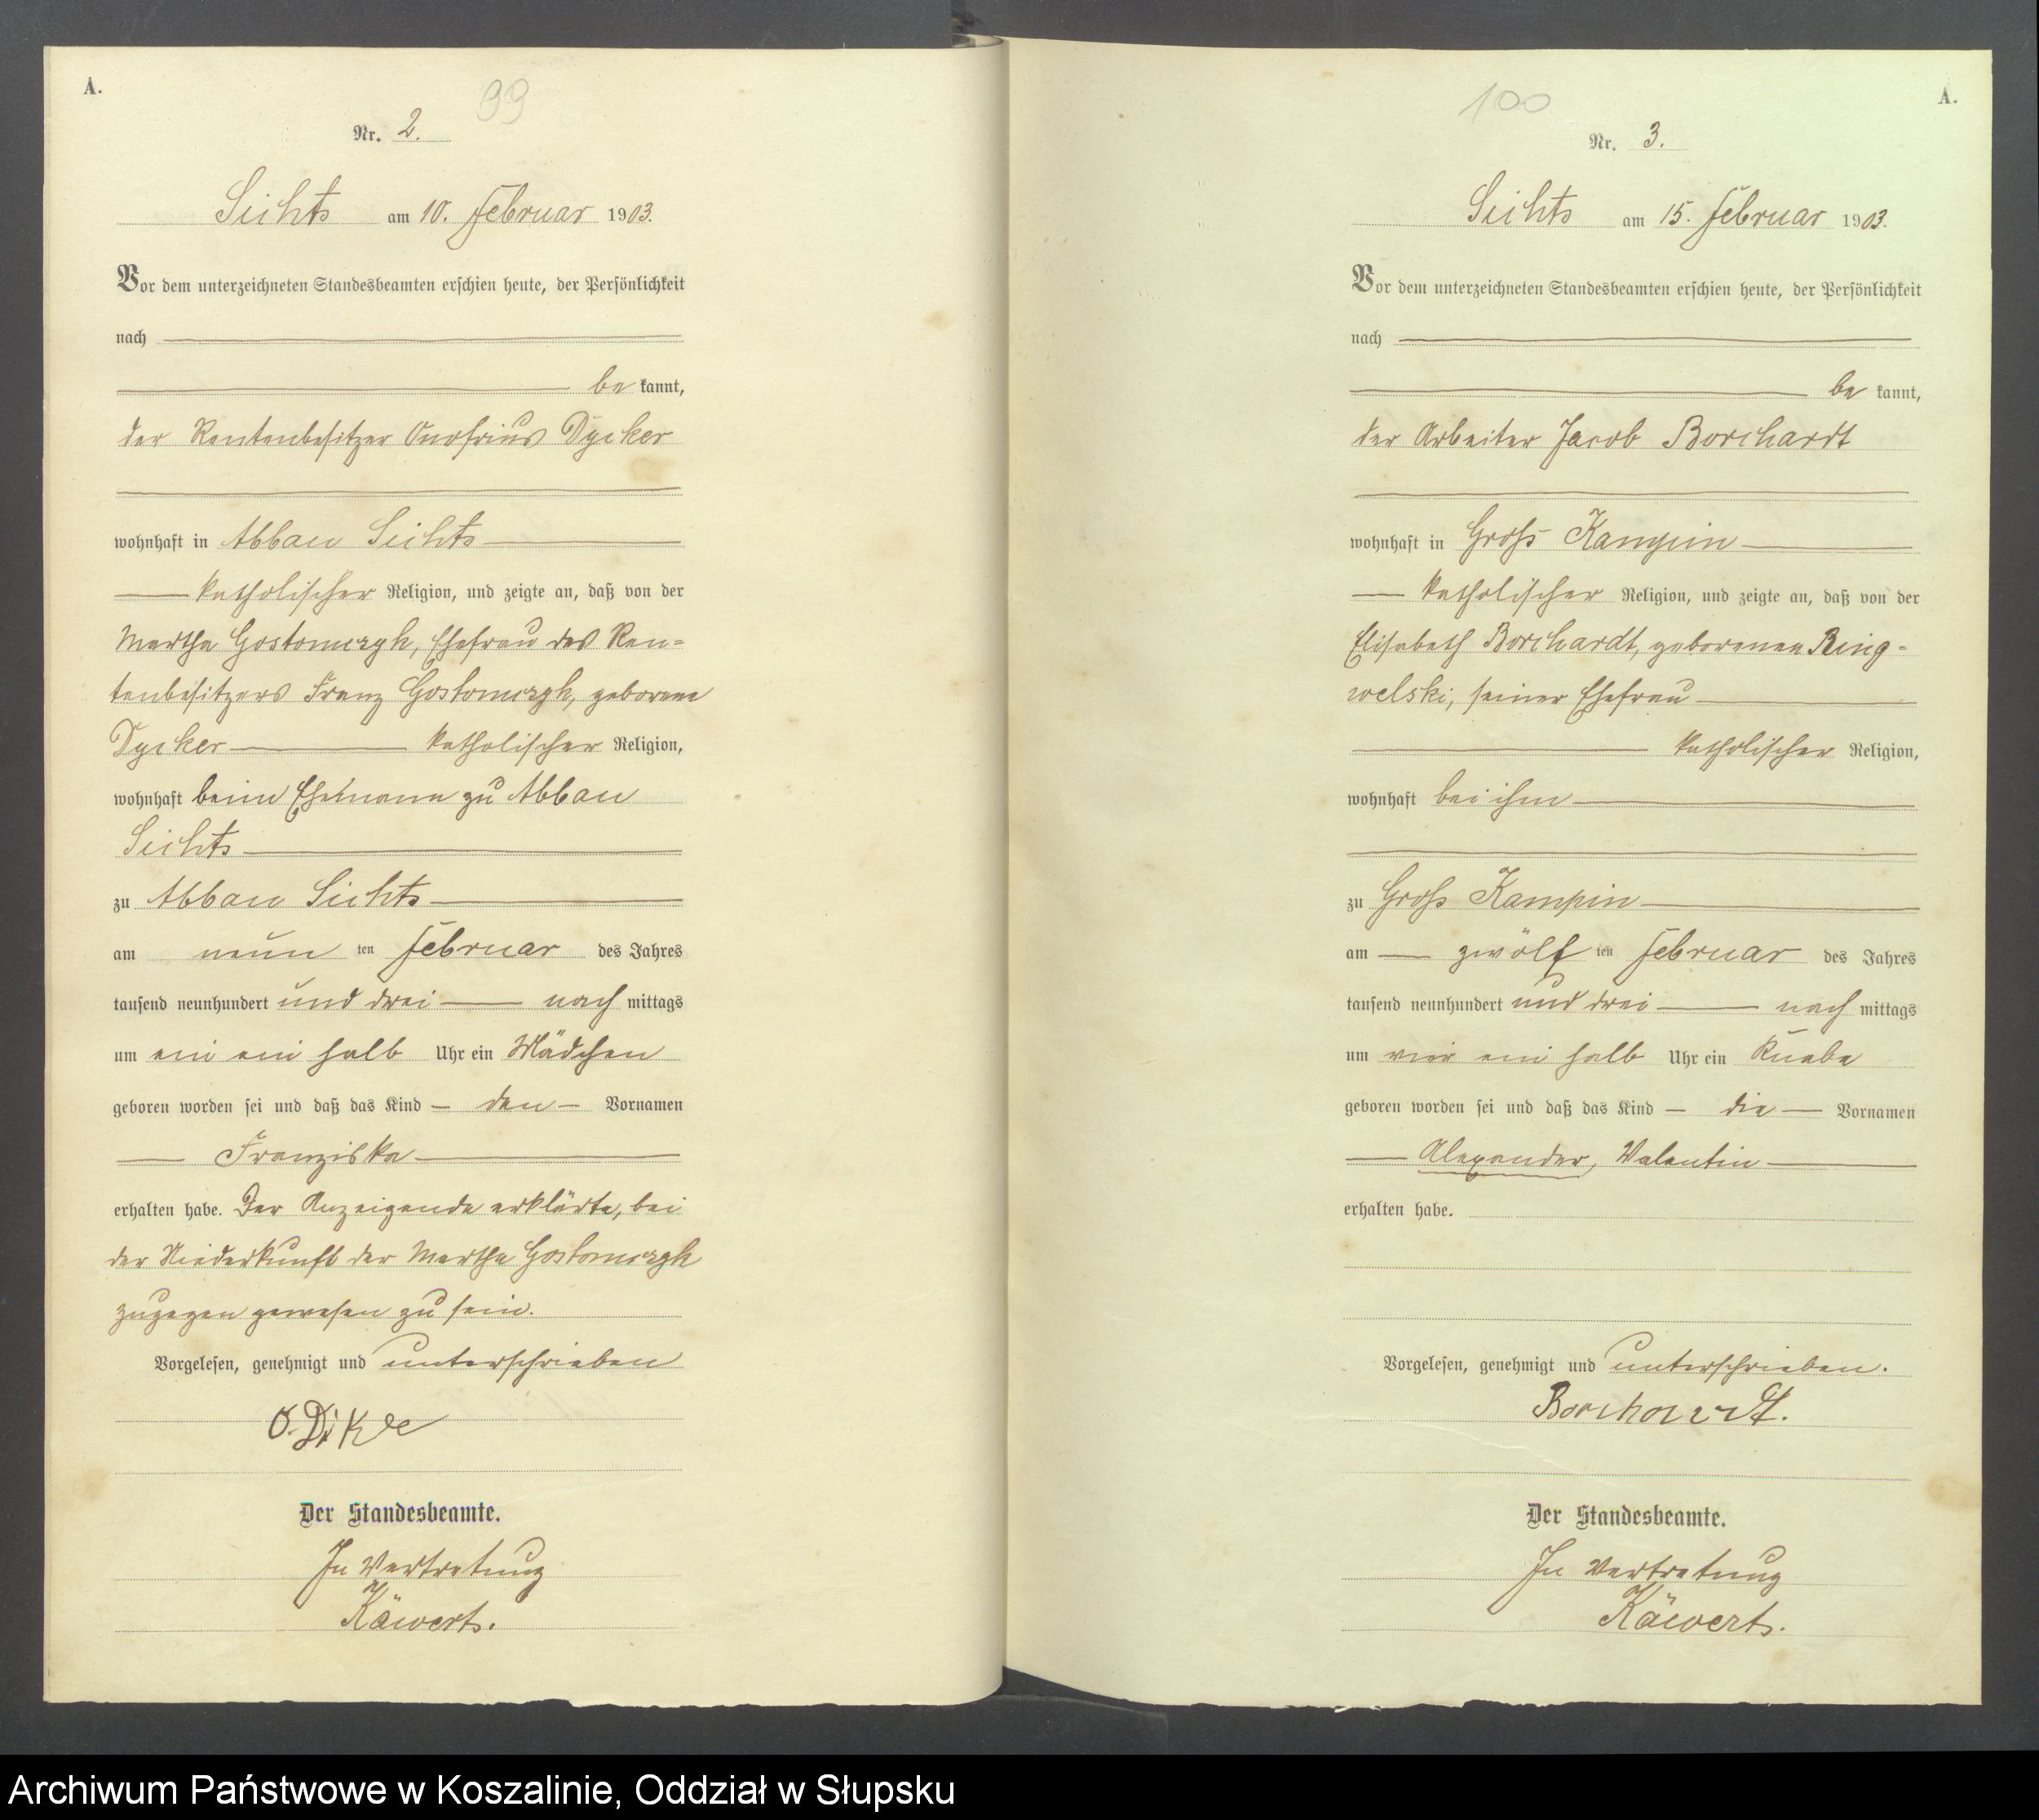 A.
99
Nr. 2.
Sichts am 10. Februar 1903.
Vor dem unterzeichneten Standesbeamten erschien heute, der Persönlichkeit
nach
be kannt,
der Rentenbesitzer Onofrius Dycker
wohnhaft in Abbau Sichts
katholischer Religion, und zeigte an, daß von der
Martha Gostomczyk, Ehefrau des Ren=
tenbesitzers Franz Gostomczyk, geborene
Dycker katholischer Religion,
wohnhaft beim Ehemann zu Abbau
Sichts
zu Abbau Sichts
am neun ten Februar des Jahres
tausend neunhundert und drei nach mittags
um ein ein halb Uhr ein Mädchen
geboren worden sei und daß das Kind - den - Vornamen
Franziska
erhalten habe. Der Anzeigende erklärte, bei
der Niederkunft der Martha Gostomczyk
zugegen gewesen zu sein.
Vorgelesen, genehmigt und unterschrieben
O. Dike
Der Standesbeamte.
In Vertretung
Käwerts.
100
A.
Nr. 3.
Sichts am 15. Februar 1903.
Vor dem unterzeichneten Standesbeamten erschien heute, der Persönlichkeit
nach
be kannt,
der Arbeiter Jacob Borchardt
wohnhaft in Groß Kampin
katholischer Religion, und zeigte an, daß von der
Elisabeth Borchardt, geborenen Ring=
welski, seiner Ehefrau
katholischer Religion,
wohnhaft bei ihm
zu Groß Kampin
am zwölf ten Februar des Jahres
tausend neunhundert und drei nach mittags
um vier ein halb Uhr ein Knabe
geboren worden sei und daß das Kind - die - Vornamen
Alexander, Valentin
erhalten habe.
Vorgelesen, genehmigt und unterschrieben.
Borchardt.
Der Standesbeamte.
In Vertretung
Käwerts.
Archiwum Państwowe w Koszalinie, Oddział w Słupsku